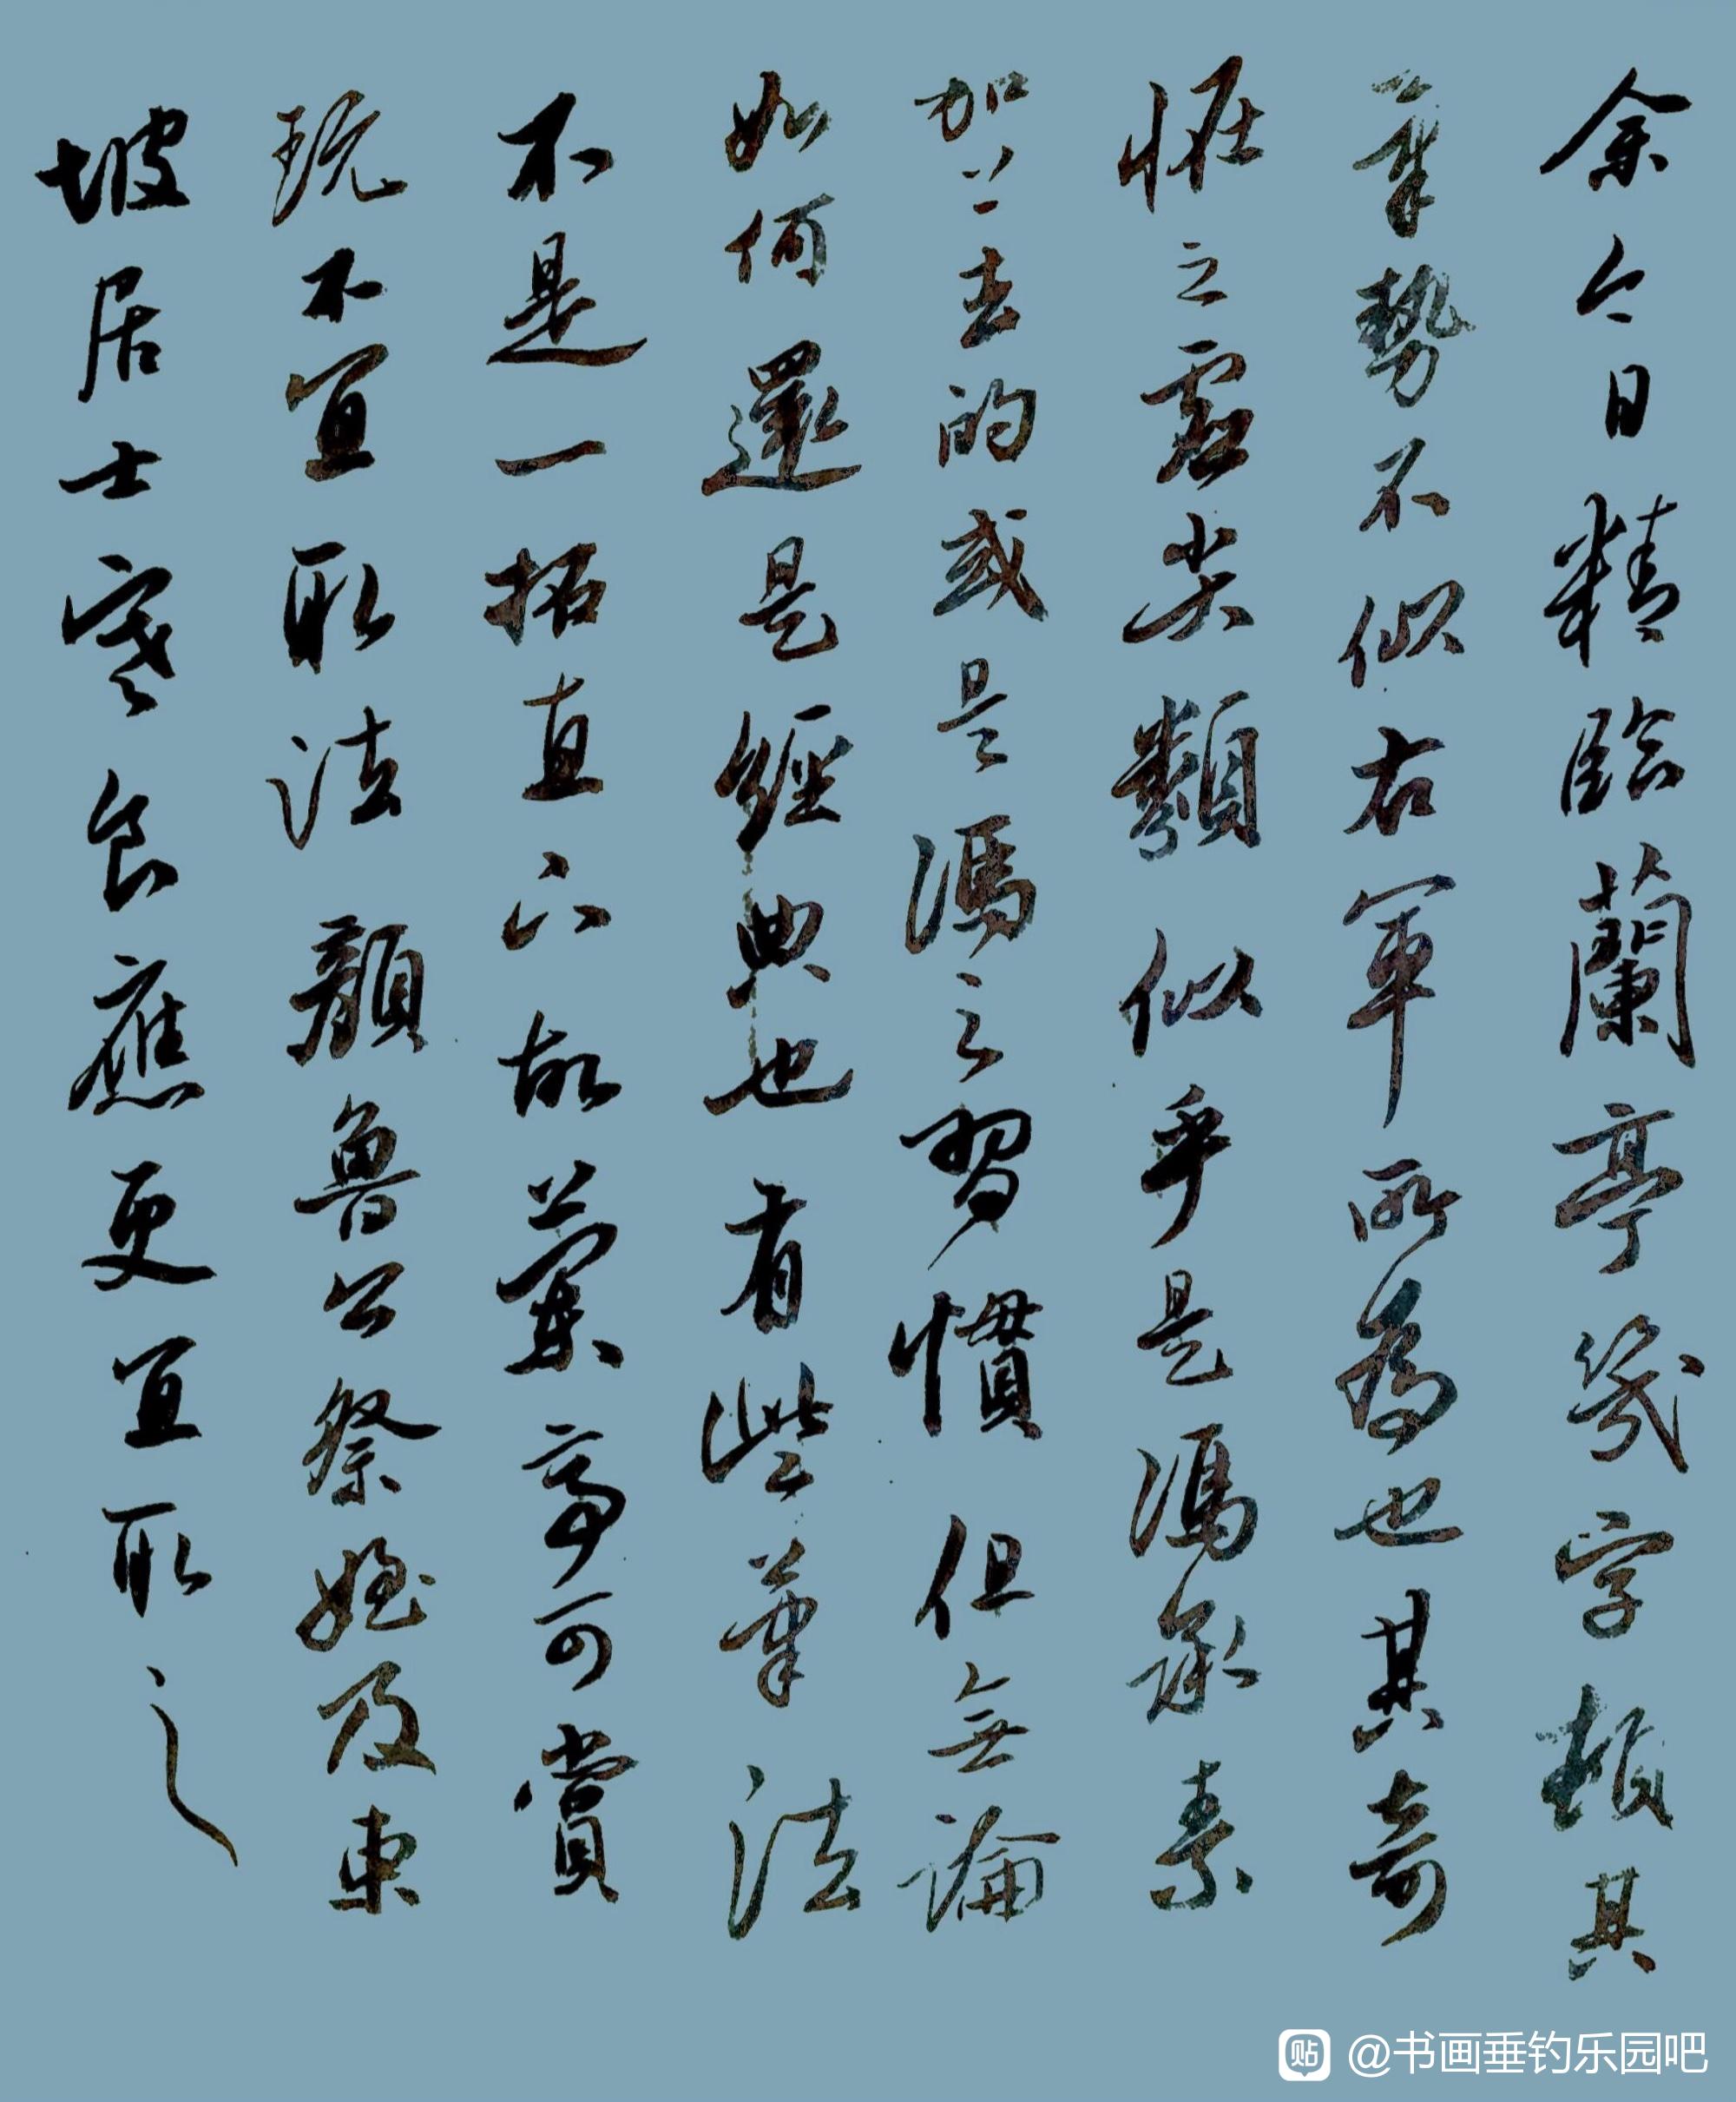 余今日精临蘭亭幾字 其
筆勢不似右軍所為也其奇
怪之露尖類似乎是馮承素
加上去的或是馮之習慣但無論
如何還是經典也有些筆法
不是一拓直下故蘭亭可賞
玩不宜取法顏魯公祭姪及東
坡居士寒食應更宜取之
贴 @书画垂钓乐园吧